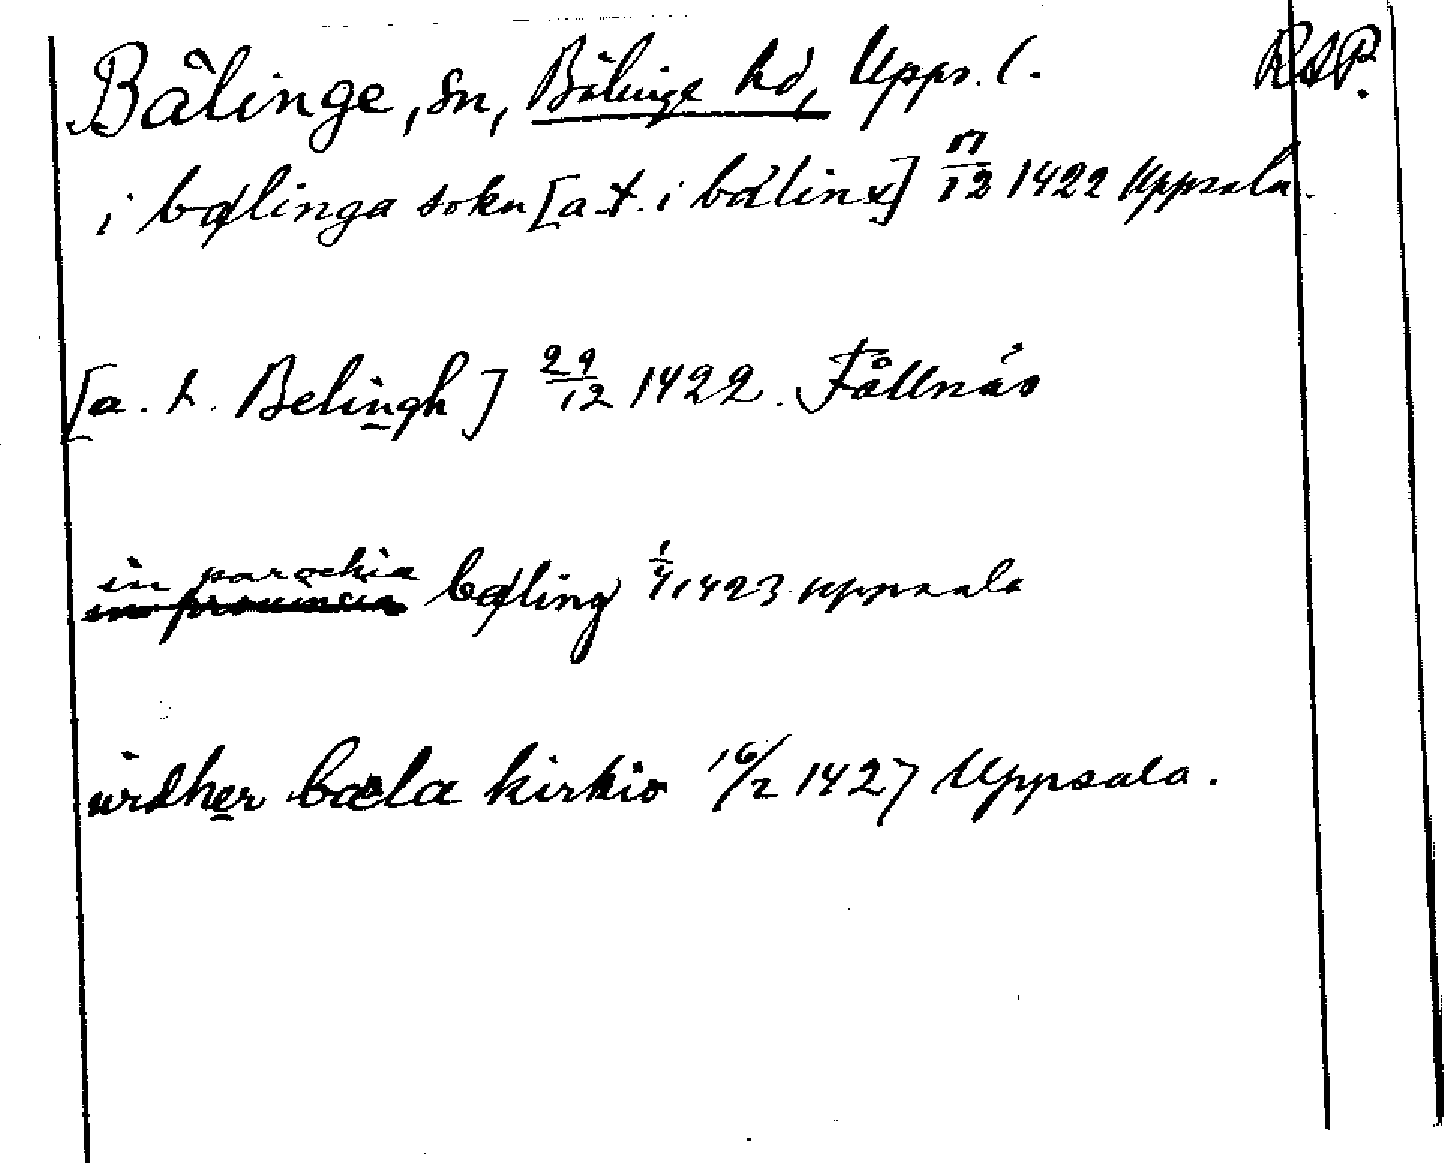 Bälinge, sn, Bälinge hd, Upps. l. RAP.
i bælinga sokn [a.t. i bälinx] 17/12 1422 Uppsala.
[a. t. Belingh] 29/12 1422. Fållnäs
in parochia
in prouincia bæling 1/4 1423 Uppsala
widher bæla kirkio 16/2 1427 Uppsala.